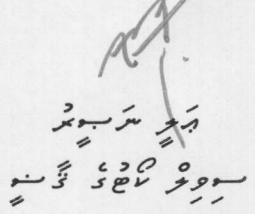 ޢަލީ ނަޞީރު
ސިވިލް ކޯޓުގެ ޤާޟީ